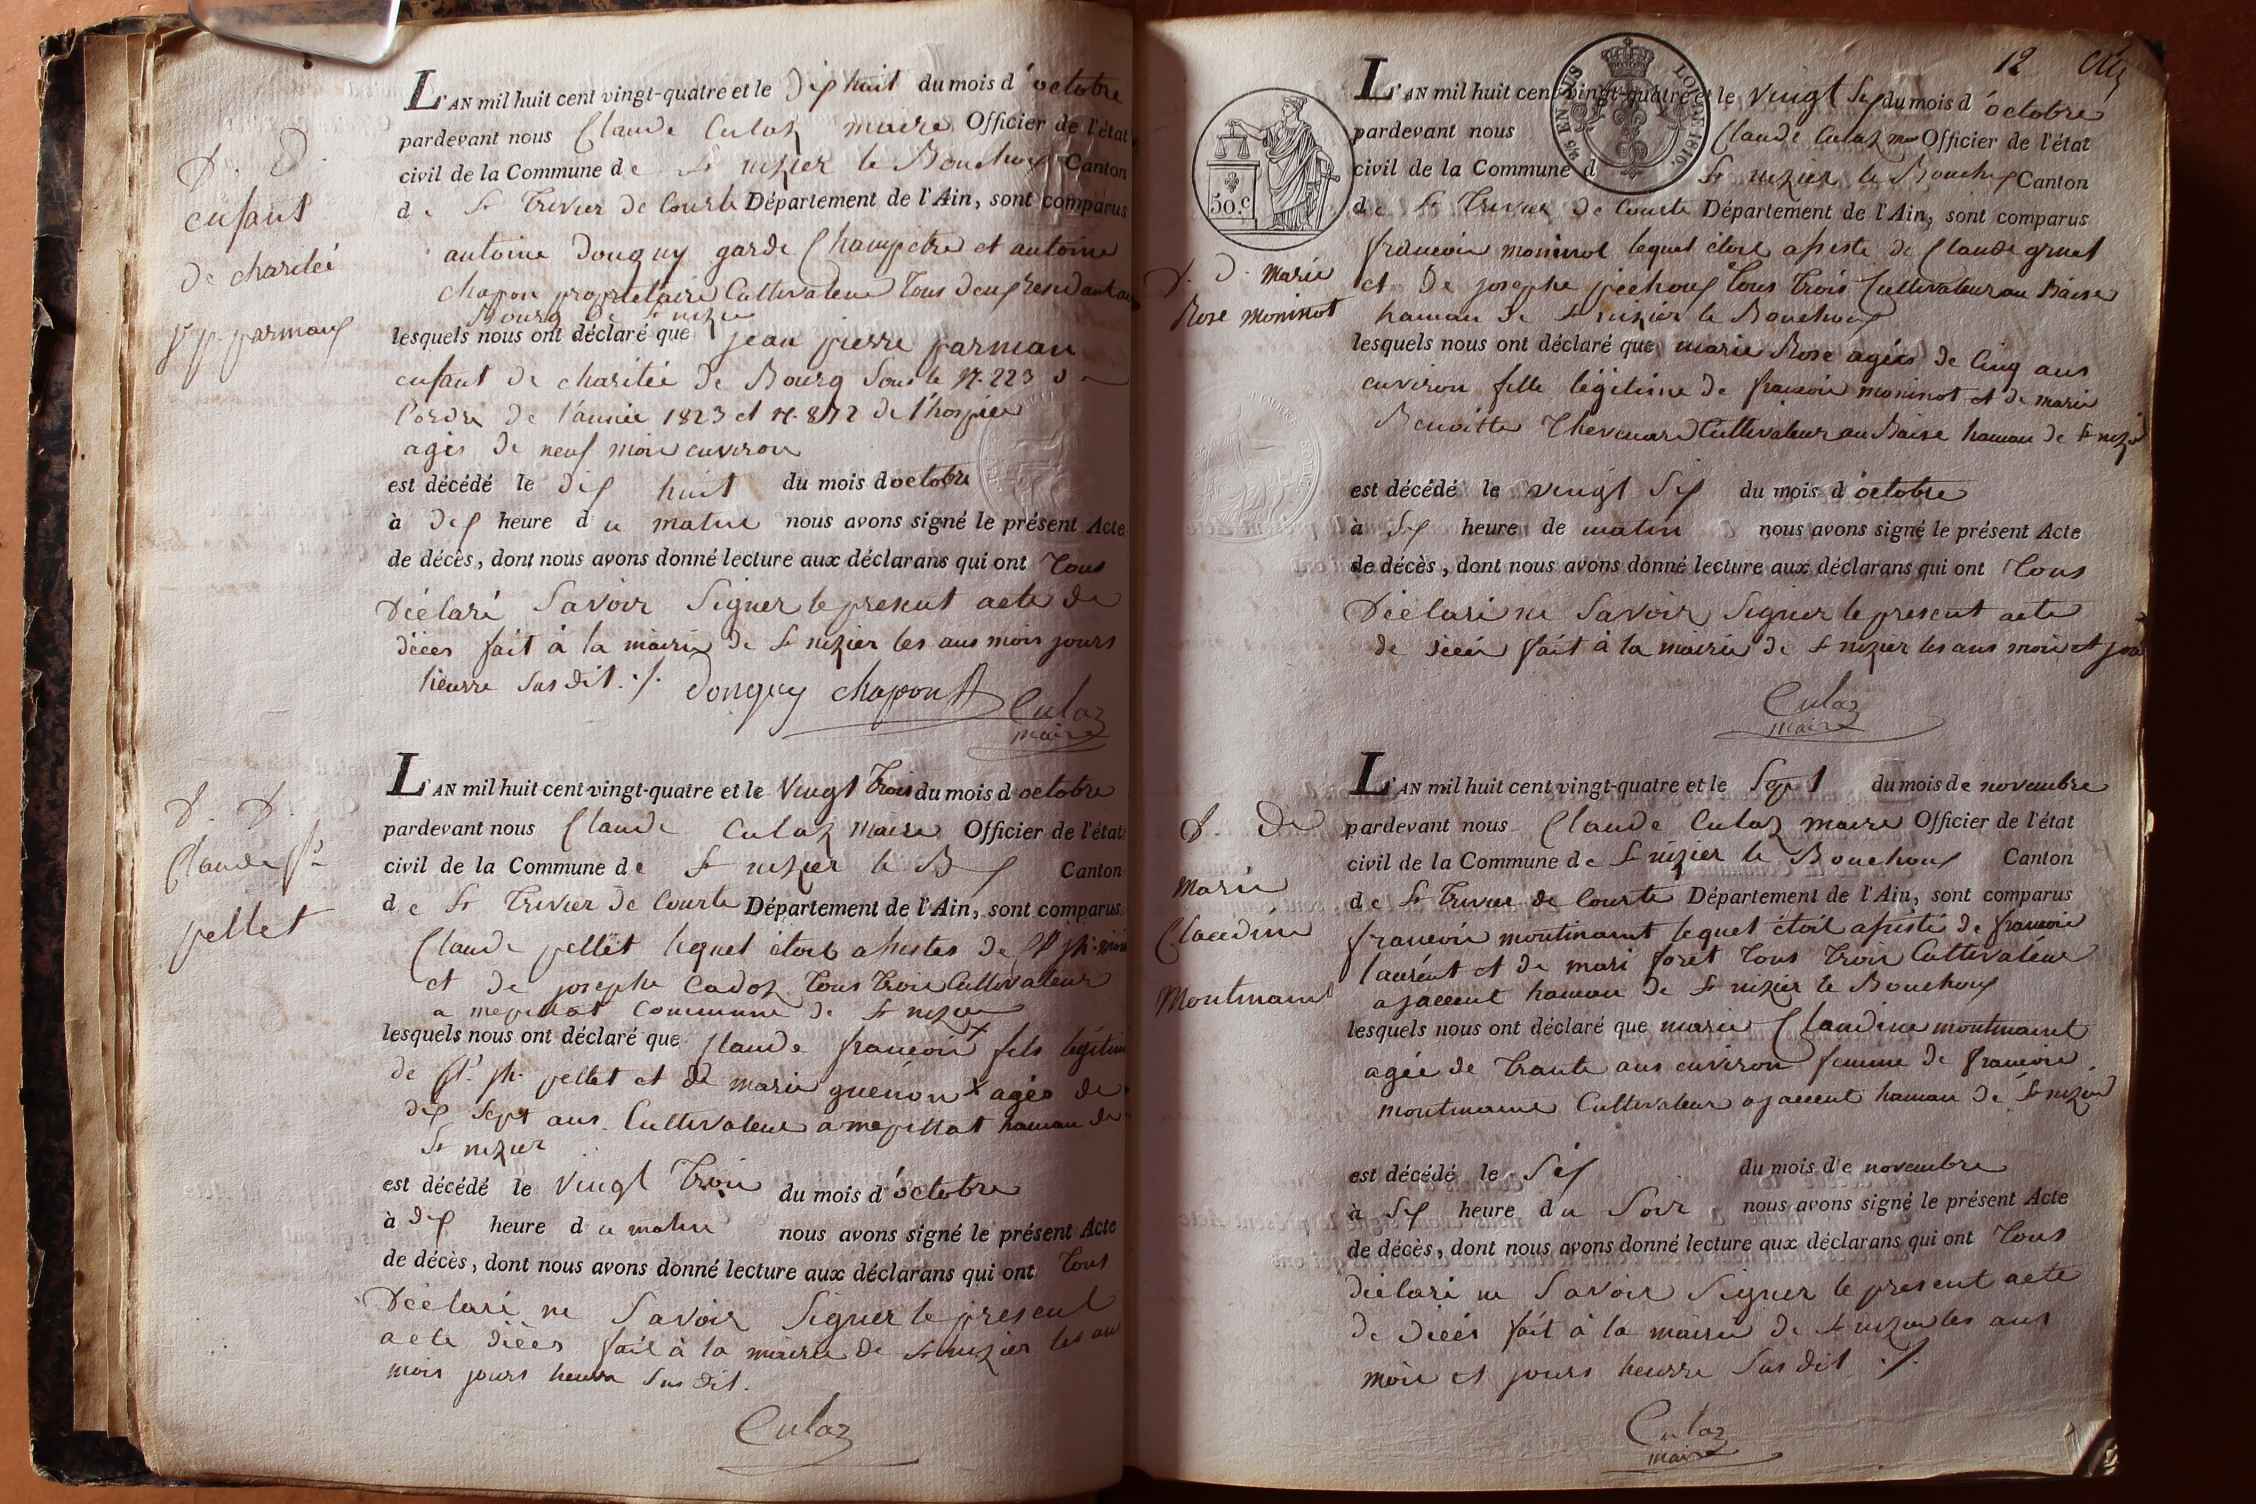 D. D.
enfant
de charitéé
jn p. parmaux
L'AN mil huit cent vingt-quatre et le dix huit du mois d'octobre
pardevant nous Claude Culaz maire Officier de l'état
civil de la Commune de St nizier le Bouchoux Canton
de St Trivier de Courte Département de l'Ain, sont comparus
antoine Donguy garde Champetre et antoine
chapon propriétaire Cultivateur tous deux residant au
Bourg de St nizier
lesquels nous ont déclaré que jean pierre parmau
enfant de charitéé de Bourg Sous le N. 223 d
l'ordre de l'année 1823 et N. 872 de l'hospice
agés de neuf mois environ
est décédé le dix huit du mois d octobre
à dix heure du matin nous avons signé le présent Acte
de décès, dont nous avons donné lecture aux déclarans qui ont tous
déclaré Savoir Signer le present acte de
déces fait à la mairie de St nizier les ans mois jours
heurre Sus dit ./. Donguy chapon A Culaz
maire
D. D.
Claude fs
pellet
L'AN mil huit cent vingt-quatre et le Vingt trois du mois d octobre
pardevant nous Claude Culaz Maire Officier de l'état
civil de la Commune de St nizier le B x Canton
de St Trivier de Courte Département de l'Ain, sont comparus
Claude pellet lequel étoit assistes de
et de josephe Cadoz tous trois Cultivateur
a mepillat Commune de St nizier
lesquels nous ont déclaré que Claude francois fils légitime
de pellet et de marie guénon x agés de
dix Sept ans Cultivateur a mepillat hamau de
St nizier
est décédé le vingt trois du mois d'octobre
à dix heure du matin nous avons signé le présent Acte
de décès, dont nous avons donné lecture aux déclarans qui ont tous
Déclaré ne Savoir Signer le present
acte décès fait à la mairie de St nizier les an
mois jours heurre Sus dit.
Culaz
12
50.c
25 EN SUS LOI DE 1816
D. D. Marie
Rose moninot
L'AN mil huit cent vingt-quatre et le Vingt Six du mois d'octobre
pardevant nous Claude Culaz Officier de l'état
civil de la Commune d St nizier le Bouchoux Canton
de St Trivier de Courte Département de l'Ain, sont comparus
francois moninot lequel étoit assisté de Claude gruet
et De josephe pechoux tous trois Cultivateur au Baise
hamau de St nizier le Bouchoux
lesquels nous ont déclaré que marie Rose agées de Cinq ans
environ fille légitime de francois moninot et de marie
Benoitte Thevenard Cultivateur au Baise hamau de St nizier
est décédé le vingt Six du mois d'octobre
à Six heure de matin nous avons signé le présent Acte
de décès, dont nous avons donné lecture aux déclarans qui ont tous
Déclaré ne Savoir Signer le present acte
de décés fait à la mairie de St nizier les ans mois et jour
Culaz
maire
D. De
marie
Claudine
Montmain
L'AN mil huit cent vingt-quatre et le Sept du mois de novembre
pardevant nous Claude Culaz maire Officier de l'état
civil de la Commune de St nizier le Bouchoux Canton
de St Trivier de Courte Département de l'Ain, sont comparus
francois montmaint lequel étoit assisté de francois
laurént et de mari foret tous trois Cultivateur
ajacent hamau de St nizier le Bouchoux
lesquels nous ont déclaré que marie Claudine montmaint
agée de trante ans environ femme de francois
montmaint Cultivateur ajacent hamau de St nizier
est décédé le Six du mois de novembre
à Six heure du Soir nous avons signé le présent Acte
de décès, dont nous avons donné lecture aux déclarans qui ont tous
déclaré ne Savoir Signer le present acte
de décés fait à la mairie de St nizier les ans
mois et jours heurre Sus dit ./.
Culaz
maire